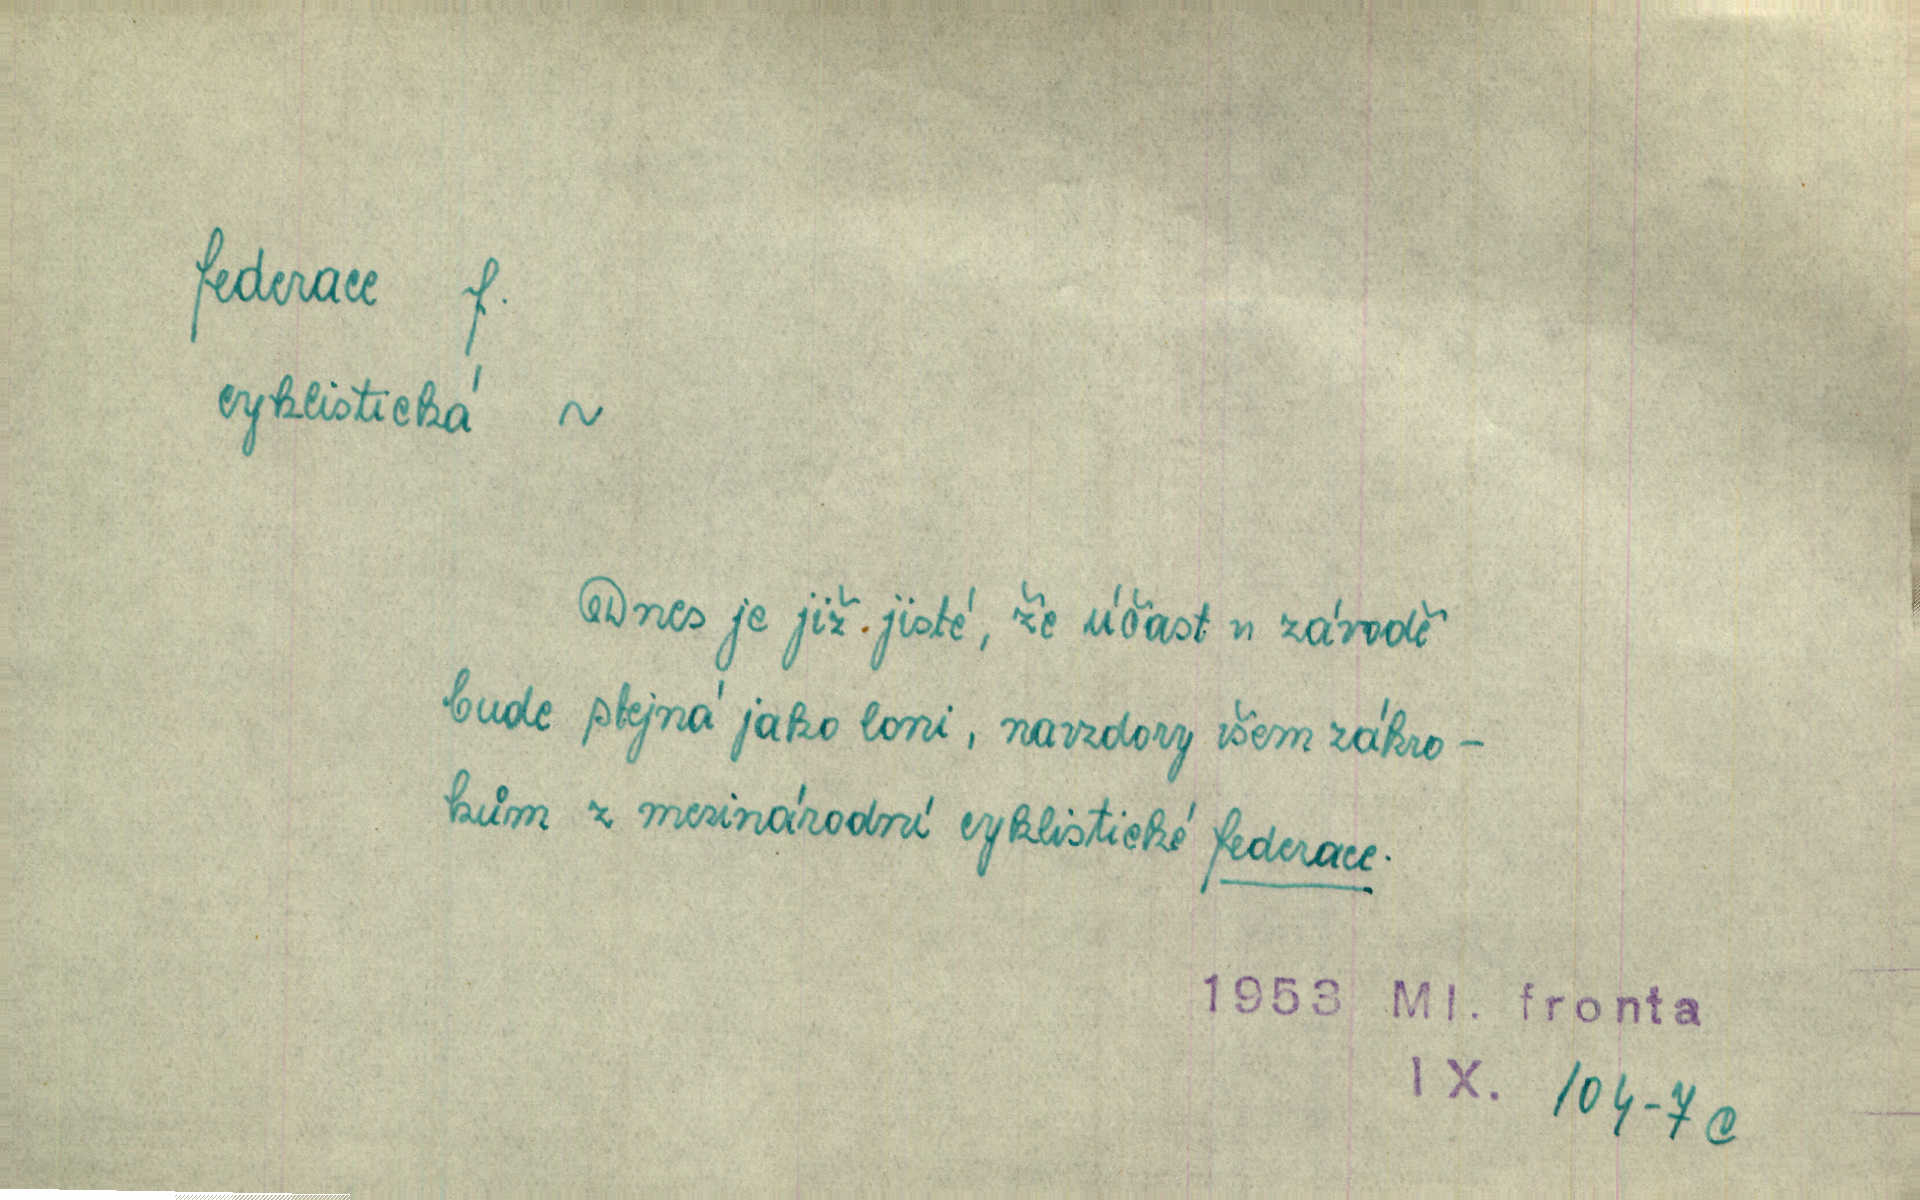 federace f.
cyklistická ~
Dnes je již jisté, že účast v závodě
bude stejná jako loni, navzdory všem zákro-
kům z mezinárodní cyklistické federace.
1953 Ml. fronta
IX. 104-7c